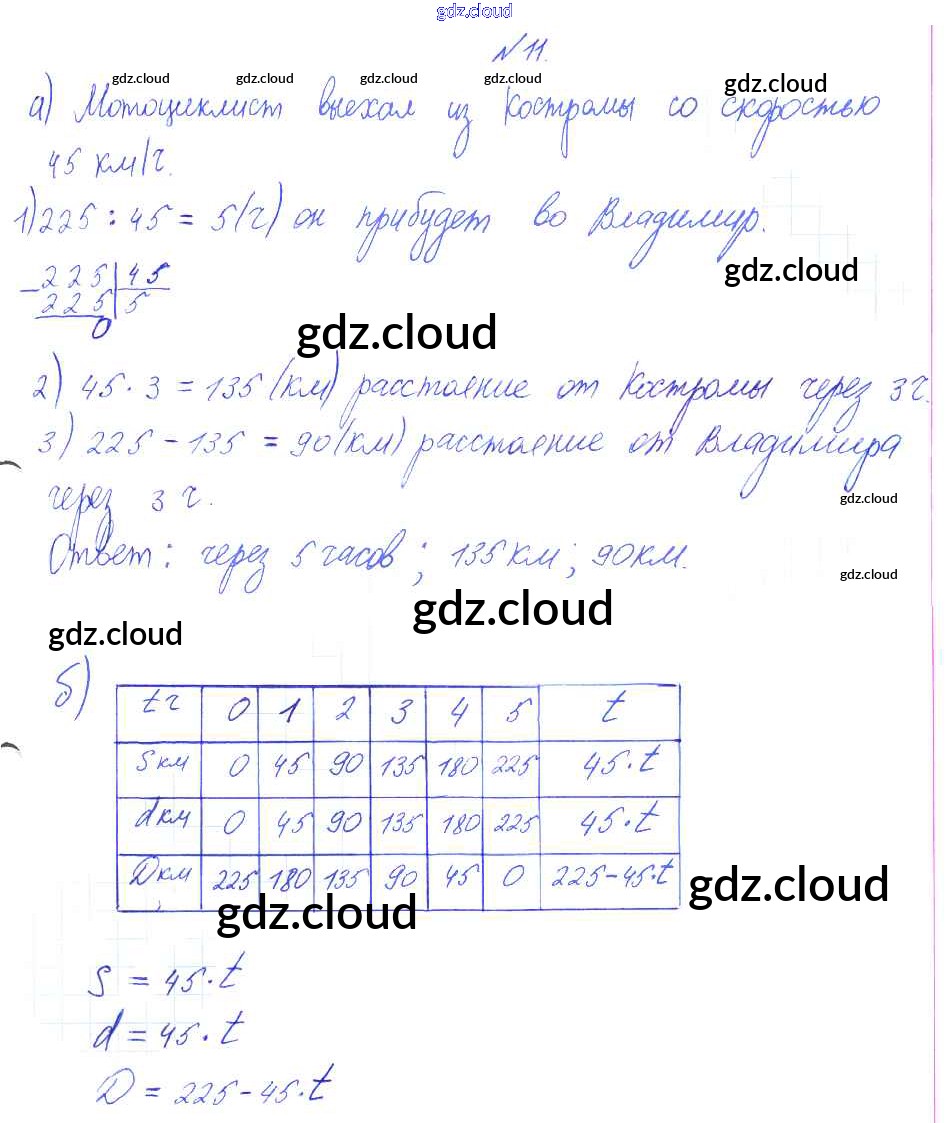 gdz.cloud
№ 11.
gdz.cloud gdz.cloud gdz.cloud gdz.cloud gdz.cloud
а) Мотоциклист выехал из Костромы со скоростью
45 км/ч.
1) 225 : 45 = 5 (ч) он прибудет во Владимир.
gdz.cloud
- 225 | 45
225 | 5
0
gdz.cloud
2) 45 · 3 = 135 (км) расстояние от Костромы через 3 ч.
3) 225 - 135 = 90 (км) расстояние от Владимира
через 3 ч.
gdz.cloud
Ответ: через 5 часов; 135 км; 90 км.
gdz.cloud
gdz.cloud
gdz.cloud
б)
t ч 0 1 2 3 4 5 t
S км 0 45 90 135 180 225 45·t
d км 0 45 90 135 180 225 45·t
D км 225 180 135 90 45 0 225-45·t
gdz.cloud
gdz.cloud
S = 45·t
d = 45·t
D = 225-45·t